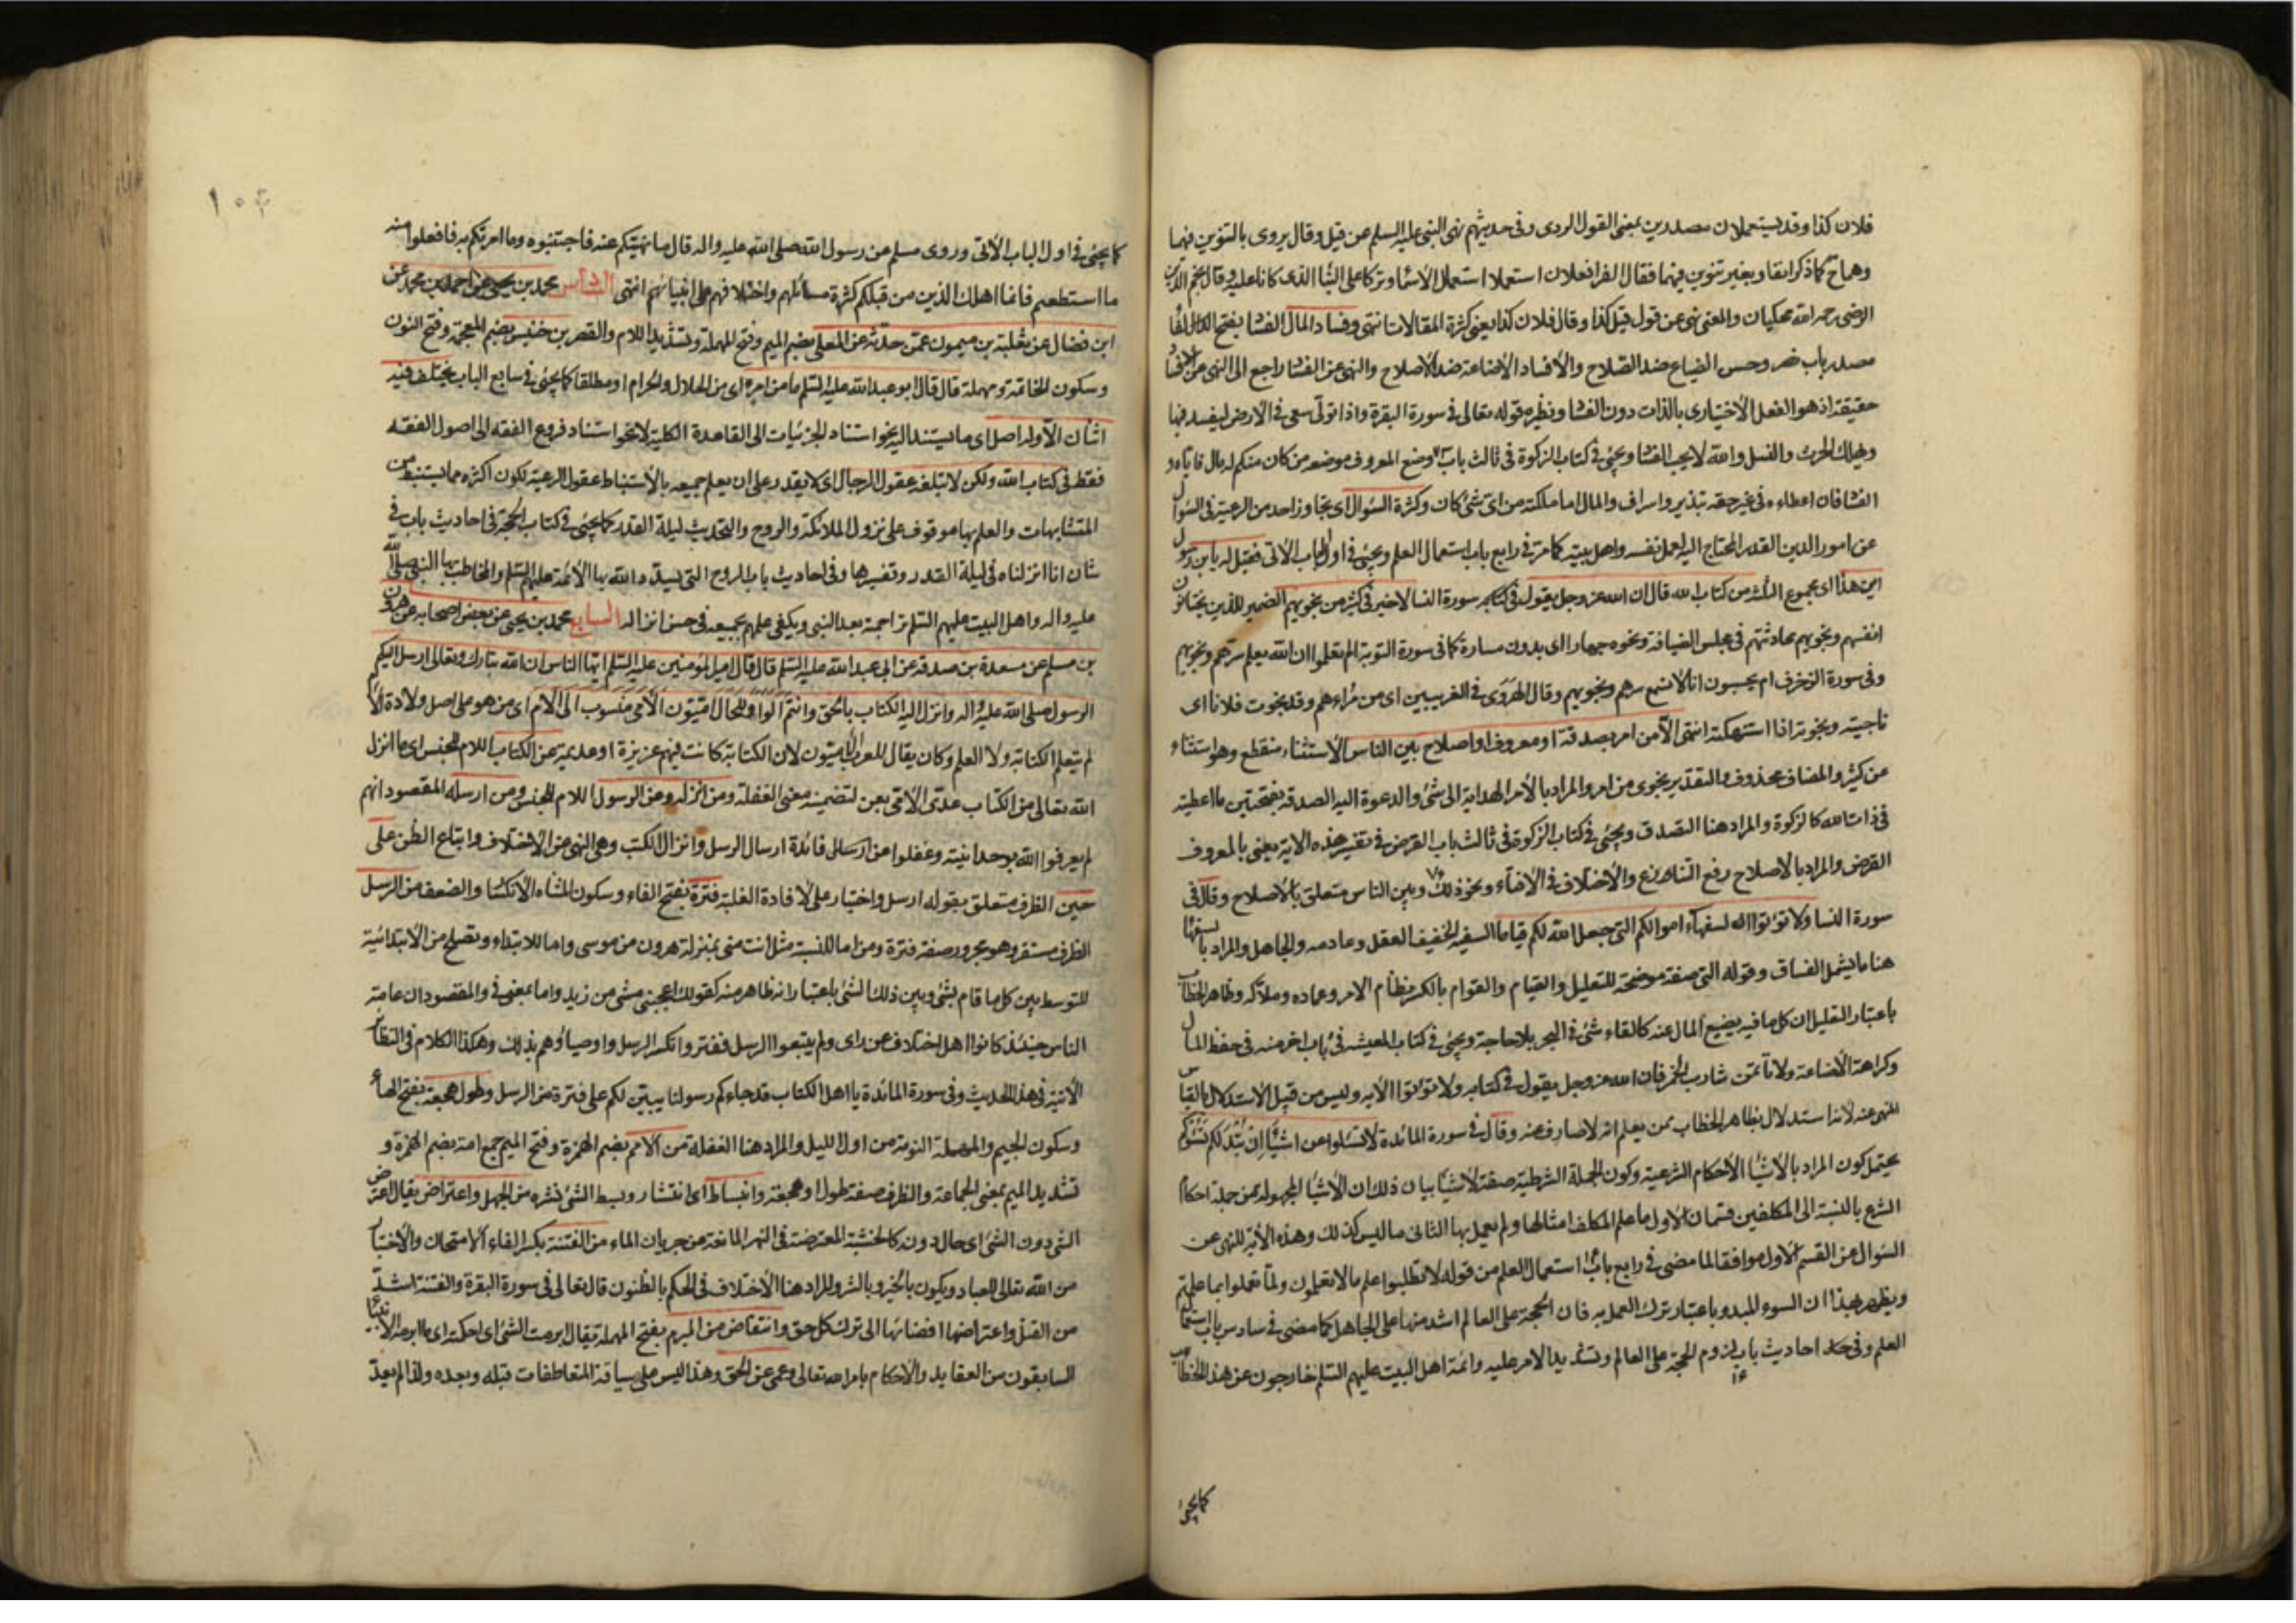 فلان كذا وقد يستعملان مصدرين بمعنى القول الردى وفى حديثهم نهى النبى عليه السلم عن قيل وقال يروى بالتنوين فيهما
وهما كما ذكرا نفا وبغير تنوين فيهما فقال الفرا فعلان استعملا استعمال الاسما وتركا على البنا الذى كانا عليه وقال نجم الدين
الرضى رحمه الله محكيان والمعنى نهى عن قول قيل كذا وقال فلان كذا يعنى كثرة المقالات انتهى وفساد المال الفسا بفتح الفا
مصدر باب نصر وحسن الضياع ضد الصلاح والافساد الاضاعة ضد الاصلاح والنهى عن الفسا راجع الى النهى عن
حقيقة اذ هو الفعل الاختيارى بالذات دون الفسا ونظيره قوله تعالى فى سورة البقرة واذا تولى سعى فى الارض ليفسد فيها
ويهلك الحرث والنسل والله لا يحب الفسا ويجئ فى كتاب الزكوة فى ثالث باب وضع المعروف موضعه من كان منكم له مال فاياه و
الفسا فان اعطاءه فى غير حقه تبذير واسراف والمال اما ملكته من اى شئ كان وكثرة السؤال اى تجاوز احد من الرعية فى السؤال
عن امور الدين القدر المحتاج اليه لعمل نفسه واهل بيته كما مر فى رابع باب استعمال العلم ويجئ فى اول الباب الاتى فقيل له يابن رسول
اين هذا اى مجموع الثلث من كتاب الله قال ان الله عز وجل يقول فى كتابه سورة النسا لا خير فى كثير من نجويهم الضمير للذين يختانون
انفسهم ونجويهم محادثتهم فى مجلس الضيافة ونحوه جهارا اى بدون مسارة كما فى سورة التوبة الم يعلموا ان الله يعلم سرهم ونجويهم
وفى سورة الزخرف ام يحسبون انا لا نسمع سرهم ونجويهم وقال الهروى فى الغريبين اى من نراءهم وقد نجوت فلانا اى
ناجيته ونجوته اذا استنهكته انتهى الا من امر بصدقة او معروف او اصلاح بين الناس الاستثناء منقطع وهو استثناء
عن كثير والمضاف محذوف والتقدير نجوى من امر والمراد بالامر الهداية الى شئ والدعوة اليه الصدقة بفتحتين ما اعطيته
فى ذات الله كالزكوة والمراد هنا التصدق ويجئ فى كتاب الزكوة فى ثالث باب القرض فى تفسير هذه الاية يعنى بالمعروف
القرض والمراد بالاصلاح رفع التنازع والاختلاف فى الافتاء ونحو ذلك وبين الناس متعلق بالاصلاح وقال فى
سورة النسا ولا تؤتوا السفهاء اموالكم التى جعل الله لكم قياما السفيه الخفيف العقل وعادمه والجاهل والمراد بالسفها
هنا ما يشمل الفساق وقوله التى صفة موضحة للتعليل والقيام والقوام بالكسر نظام الامر وعماده وملاكه وظاهر الخطاب
باعتبار التعليل ان كل ما فيه يضيع المال عنه كالقاء شئ فى البحر بلا حاجة ويجئ فى كتاب المعيشة فى باب اخر منه فى حفظ المال
وكراهة الاضاعة ولا تأتمن شارب الخمر فان الله عز وجل يقول فى كتابه ولا تؤتوا الايه وليس من قبيل الاستدلال بالقياس
المنهى عنه لانه استدلال بظاهر الخطاب ممن يعلم انه لا صارف عنه وقال فى سورة المائدة لا تسئلوا عن اشيا ان تبد لكم تسؤكم
يحتمل كون المراد بالاشيا الاحكام الشرعية وكون الجملة الشرطية صفة لاشيا بيان ذلك ان الاشيا المجهولة من جملة احكام
الشرع بالنسبة الى المكلفين قسمان الاول ما علم المكلف امثالها ولم يعمل بها الثانى ما ليس كذلك وهذه الاية للنهى عن
السؤال عن القسم الاول موافقا لما مضى فى رابع باب استعمال العلم من قوله لا تطلبوا علم ما لا تعلمون ولما تعملوا بما علمتم
ويظهر بهذا ان السوء المبدو باعتبار ترك العمل به فان الحجة على العالم اشد منها على الجاهل كما مضى فى سادس باب استعمال
العلم وفى احاديث باب لزوم الحجة على العالم وتشديد الامر عليه وائمة اهل البيت عليهم السلم خارجون عن هذا الخطاب
كما يجئ
١٥٤
كما يجئ فى اول الباب الاتى وروى مسلم عن رسول الله صلى الله عليه واله قال ما نهيتكم عنه فاجتنبوه وما امرتكم به فافعلوا منه
ما استطعتم فانما اهلك الذين من قبلكم كثرة مسائلهم واختلافهم على انبيائهم انتهى السادس محمد بن يحيى عن احمد بن محمد عن
ابن فضال عن ثعلبة بن ميمون عمن حدثه عن المعلى بضم الميم وفتح المهملة وتشديد اللام والقصر بن خنيس بضم المعجمة وفتح النون
وسكون الخاتمة ومهملة قال قال ابو عبد الله عليه السلم ما من امر اى من الحلال والحرام او مطلقا كما يجئ فى سابع الباب يختلف فيه
اثنان الا وله اصل اى ما يستند اليه نحو استناد الجزئيات الى القاعدة الكلية لا نحو استناد فروع الفقه الى اصول الفقه
فقط فى كتاب الله ولكن لا تبلغه عقول الرجال اى لا يقدر على ان يعلم جميعه بالاستنباط عقول الرعية لكون اكثره مما يستنبط من
المتشابهات والعلم بها موقوف على نزول الملائكة والروح والتحديث ليلة القدر كما يجئ فى كتاب الحجة فى احاديث باب فى
شان انا انزلناه فى ليلة القدر وتفسيرها وفى احاديث باب الروح التى يسدد الله بها الائمة عليهم السلم والمخاطب بها النبى صلى الله
عليه واله واهل البيت عليهم السلم تراجمة بعد النبى ويكفى علمهم بجميعه فى حسن انزاله السابع محمد بن يحيى عن بعض اصحابه عن هرون
بن مسلم عن مسعدة بن صدقة عن ابى عبد الله عليه السلم قال قال امير المؤمنين عليه السلم ايها الناس ان الله تبارك وتعالى ارسل اليكم
الرسول صلى الله عليه واله وانزل اليه الكتاب بالحق وانتم الواو للحال اميون الامى منسوب الى الام اى من هو على اصل ولادة الام
لم يتعلم الكتابة ولا العلم وكان يقال للعرب الاميون لان الكتابة كانت فيهم عزيزة او عديمة عن الكتاب اللام للجنس اى ما انزل
الله تعالى من الكتاب عدى الامى بعن لتضمينه معنى الغفلة ومن انزله وعن الرسول اللام للجنس ومن ارسله المقصود انهم
لم يعرفوا الله بوحدانيته وغفلوا عن ارسال فائدة ارسال الرسل وانزال الكتب وهى النهى عن الاختلاف واتباع الظن على
حين الظرف متعلق بقوله ارسل واختيار على لافادة الغلبة فترة بفتح الفاء وسكون المثناه الانكسا والضعف من الرسل
الظرف مستقر وهو مجرور صفة فترة ومن اما للنسبة مثل انت منى بمنزلة هرون من موسى واما للابتداء ويصلح من الابتدائية
للتوسط بين كل ما قام بشئ وبين ذلك الشئ باعتبار انه ظاهر منه كقولك اعجبنى مشى من زيد واما بمعنى فى والمقصود ان عامة
الناس حينئذ كانوا اهل اختلاف عن راى ولم يتبعوا الرسل ففتر وانكسر الرسل واوصياؤهم بذلك وهكذا الكلام فى النظائر
الاتية فى هذا الحديث وفى سورة المائدة يا اهل الكتاب قد جاءكم رسولنا يبين لكم على فترة من الرسل وطول هجعة بفتح الهاء
وسكون الجيم والمهملة النومة من اول الليل والمراد هنا الغفلة من الامم بضم الهمزة وفتح الميم جمع امة بضم الهمزة و
تشديد الميم بمعنى الجماعة والظرف صفة طول او هجعة وانبساط اى انتشار وبسط الشئ نشره من الجهل واعتراض يقال اعترض
الشئ دون الشئ اى حال دونه كالخشبة المعترضة فى النهر المانعة من جريان الماء من الفتنة بكسر الفاء الامتحان والاختبا
من الله تعالى للعباد ويكون بالخير وبالشر والمراد هنا الاختلاف فى الحكم بالظنون قال تعالى فى سورة البقرة والفتنة اشد
من القتل واعتراضها افضائها الى ترك كل حق وانتقاض من المبرم بفتح المهملة يقال ابرمت الشئ اى احكمته اى ما ابرمه الانبيا
السابقون من العقايد والاحكام بامر الله تعالى وعمى عن الحق وهذا ليس على سياقة المتعاطفات قبله وبعده ولذا لم يعد